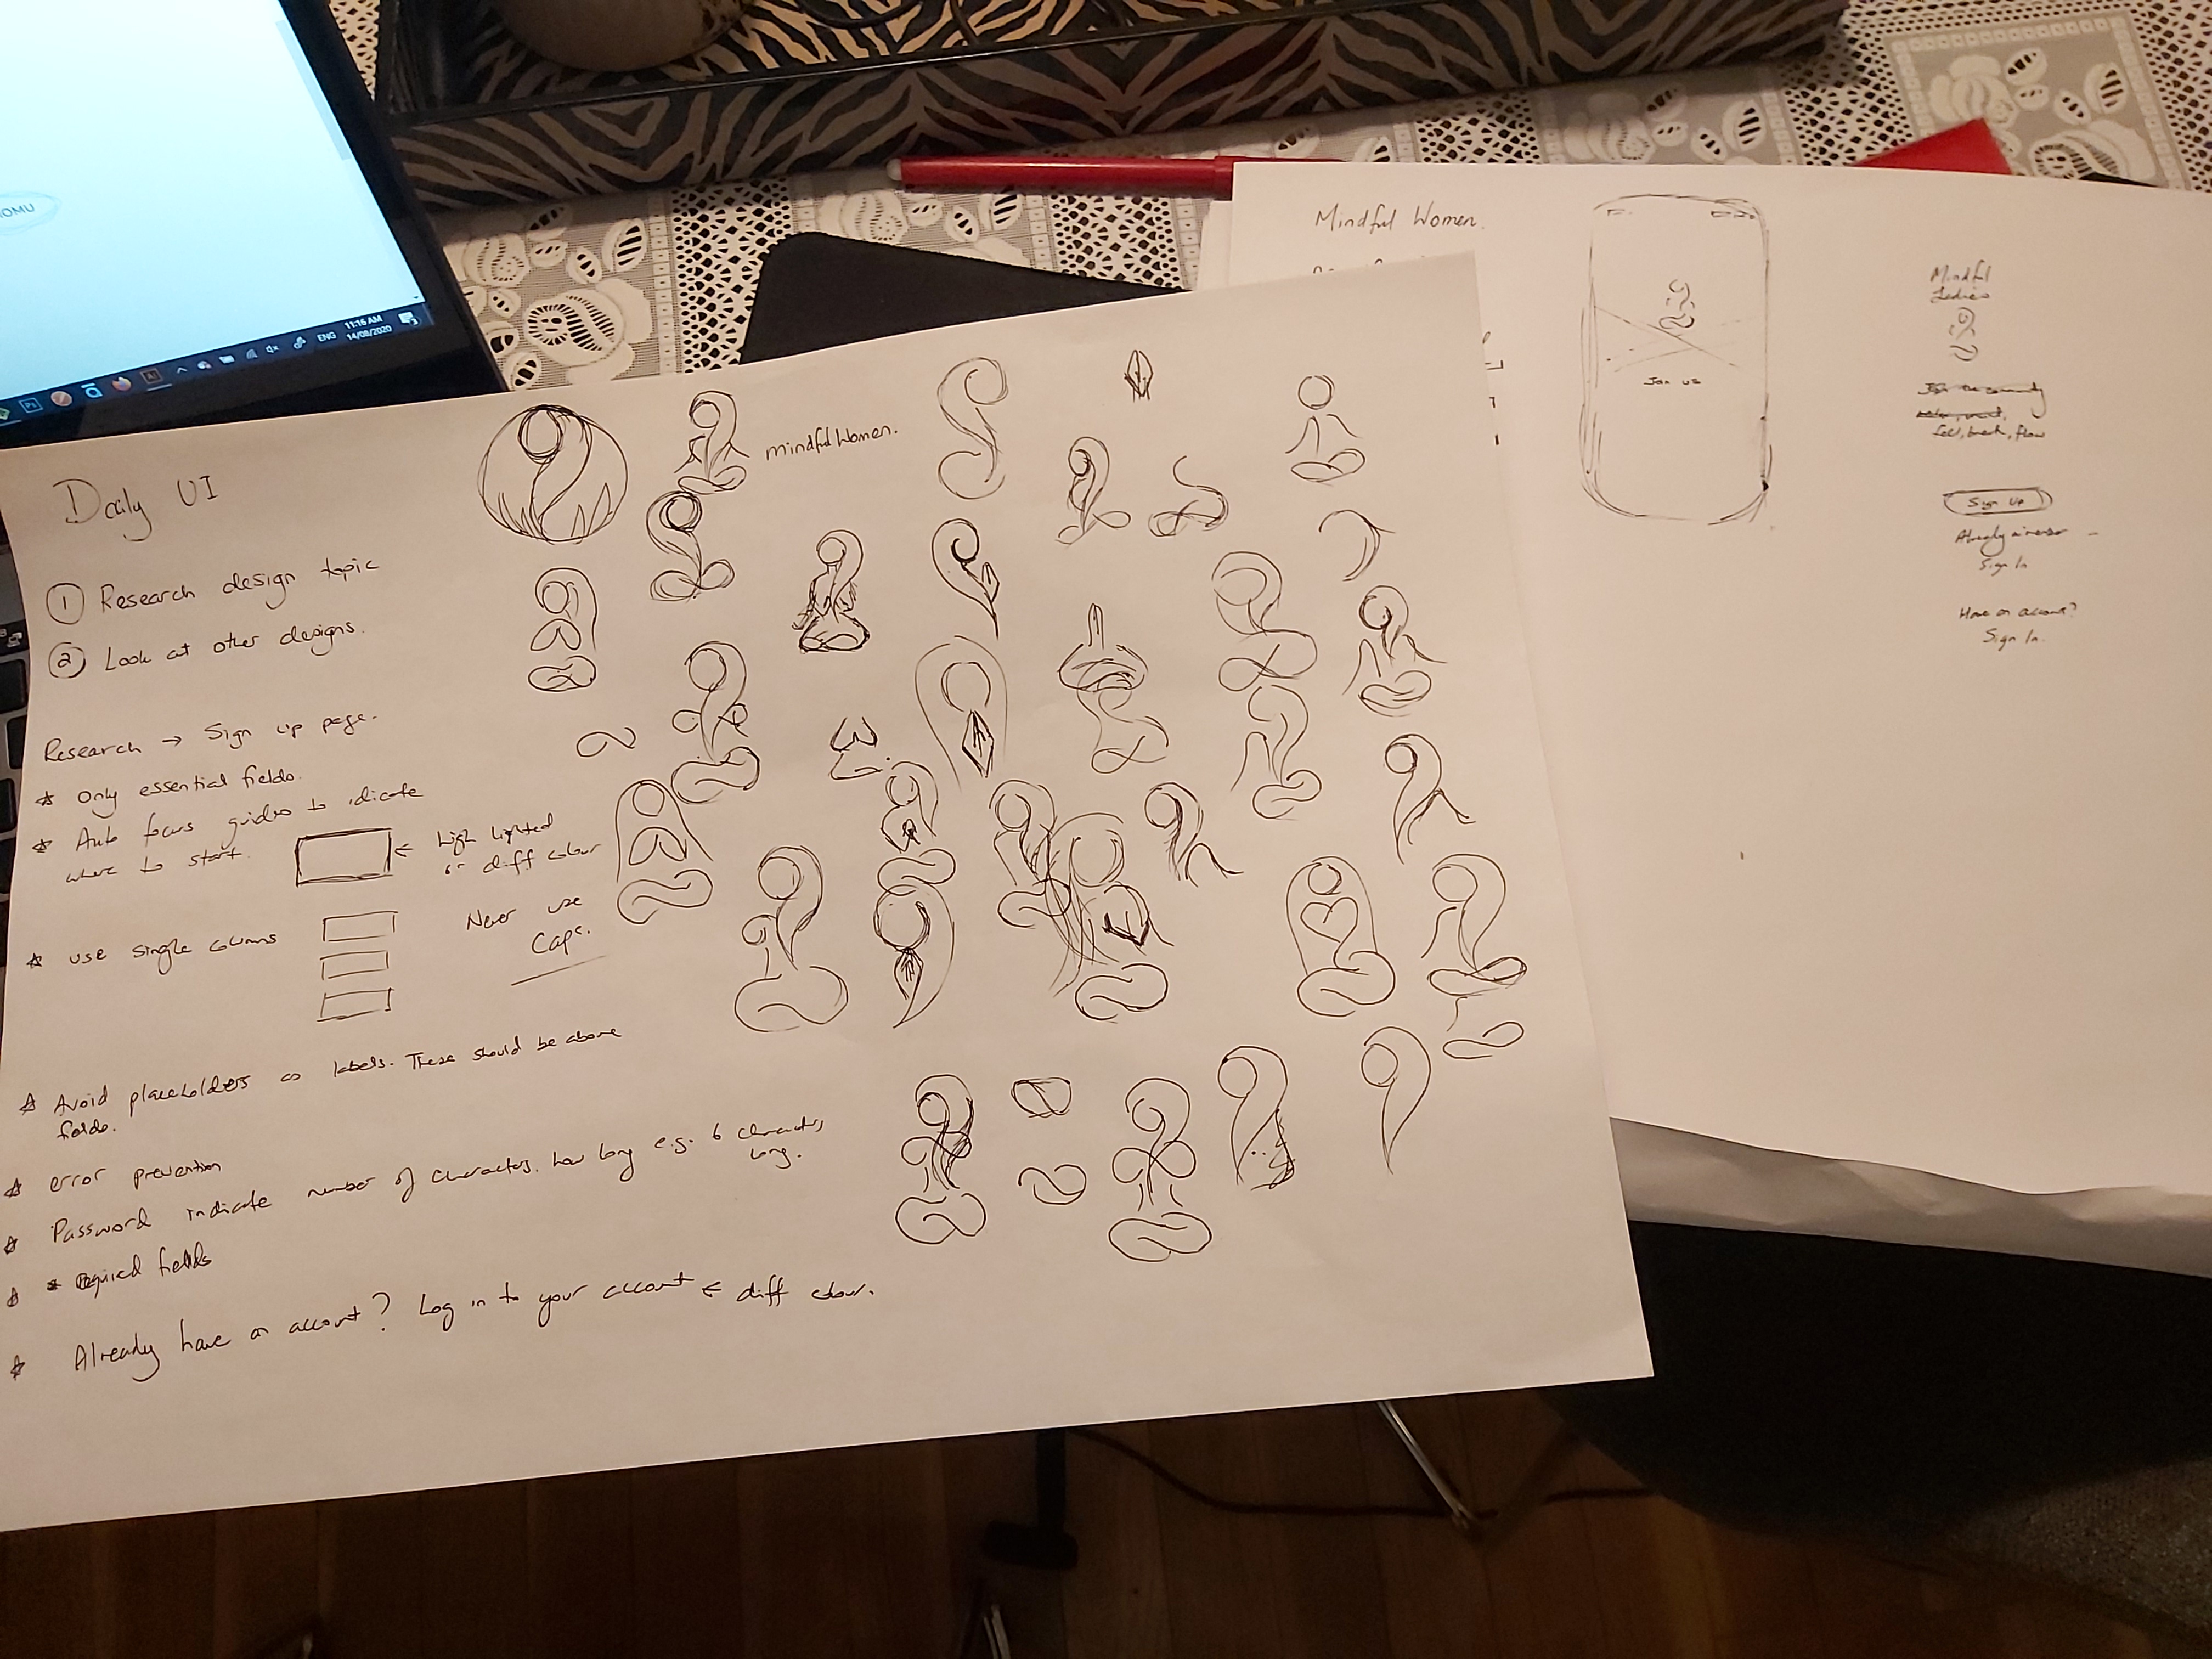 OMU
ENG
11:16 AM
14/08/2020
Ps
Daily UI
1 Research design topic
2 Look at other designs.
Research → Sign up page.
Only essential fields.
Auto focus guides to idicate
where to start.
← high lighted
or diff colour
use single columns
Never use
Caps.
Avoid placeholders as labels. These should be above
fields.
error prevention
Password indicate number of characters. how long e.g. 6 characters
long.
* required fields
Already have an account? Log in to your account ← diff colour.
mindfulWomen.
Mindful Women.
Join us
Mindful
Ladies
Join the community
feel, breath, flow
Sign Up
Already a
Sign In
Have an account?
Sign In.